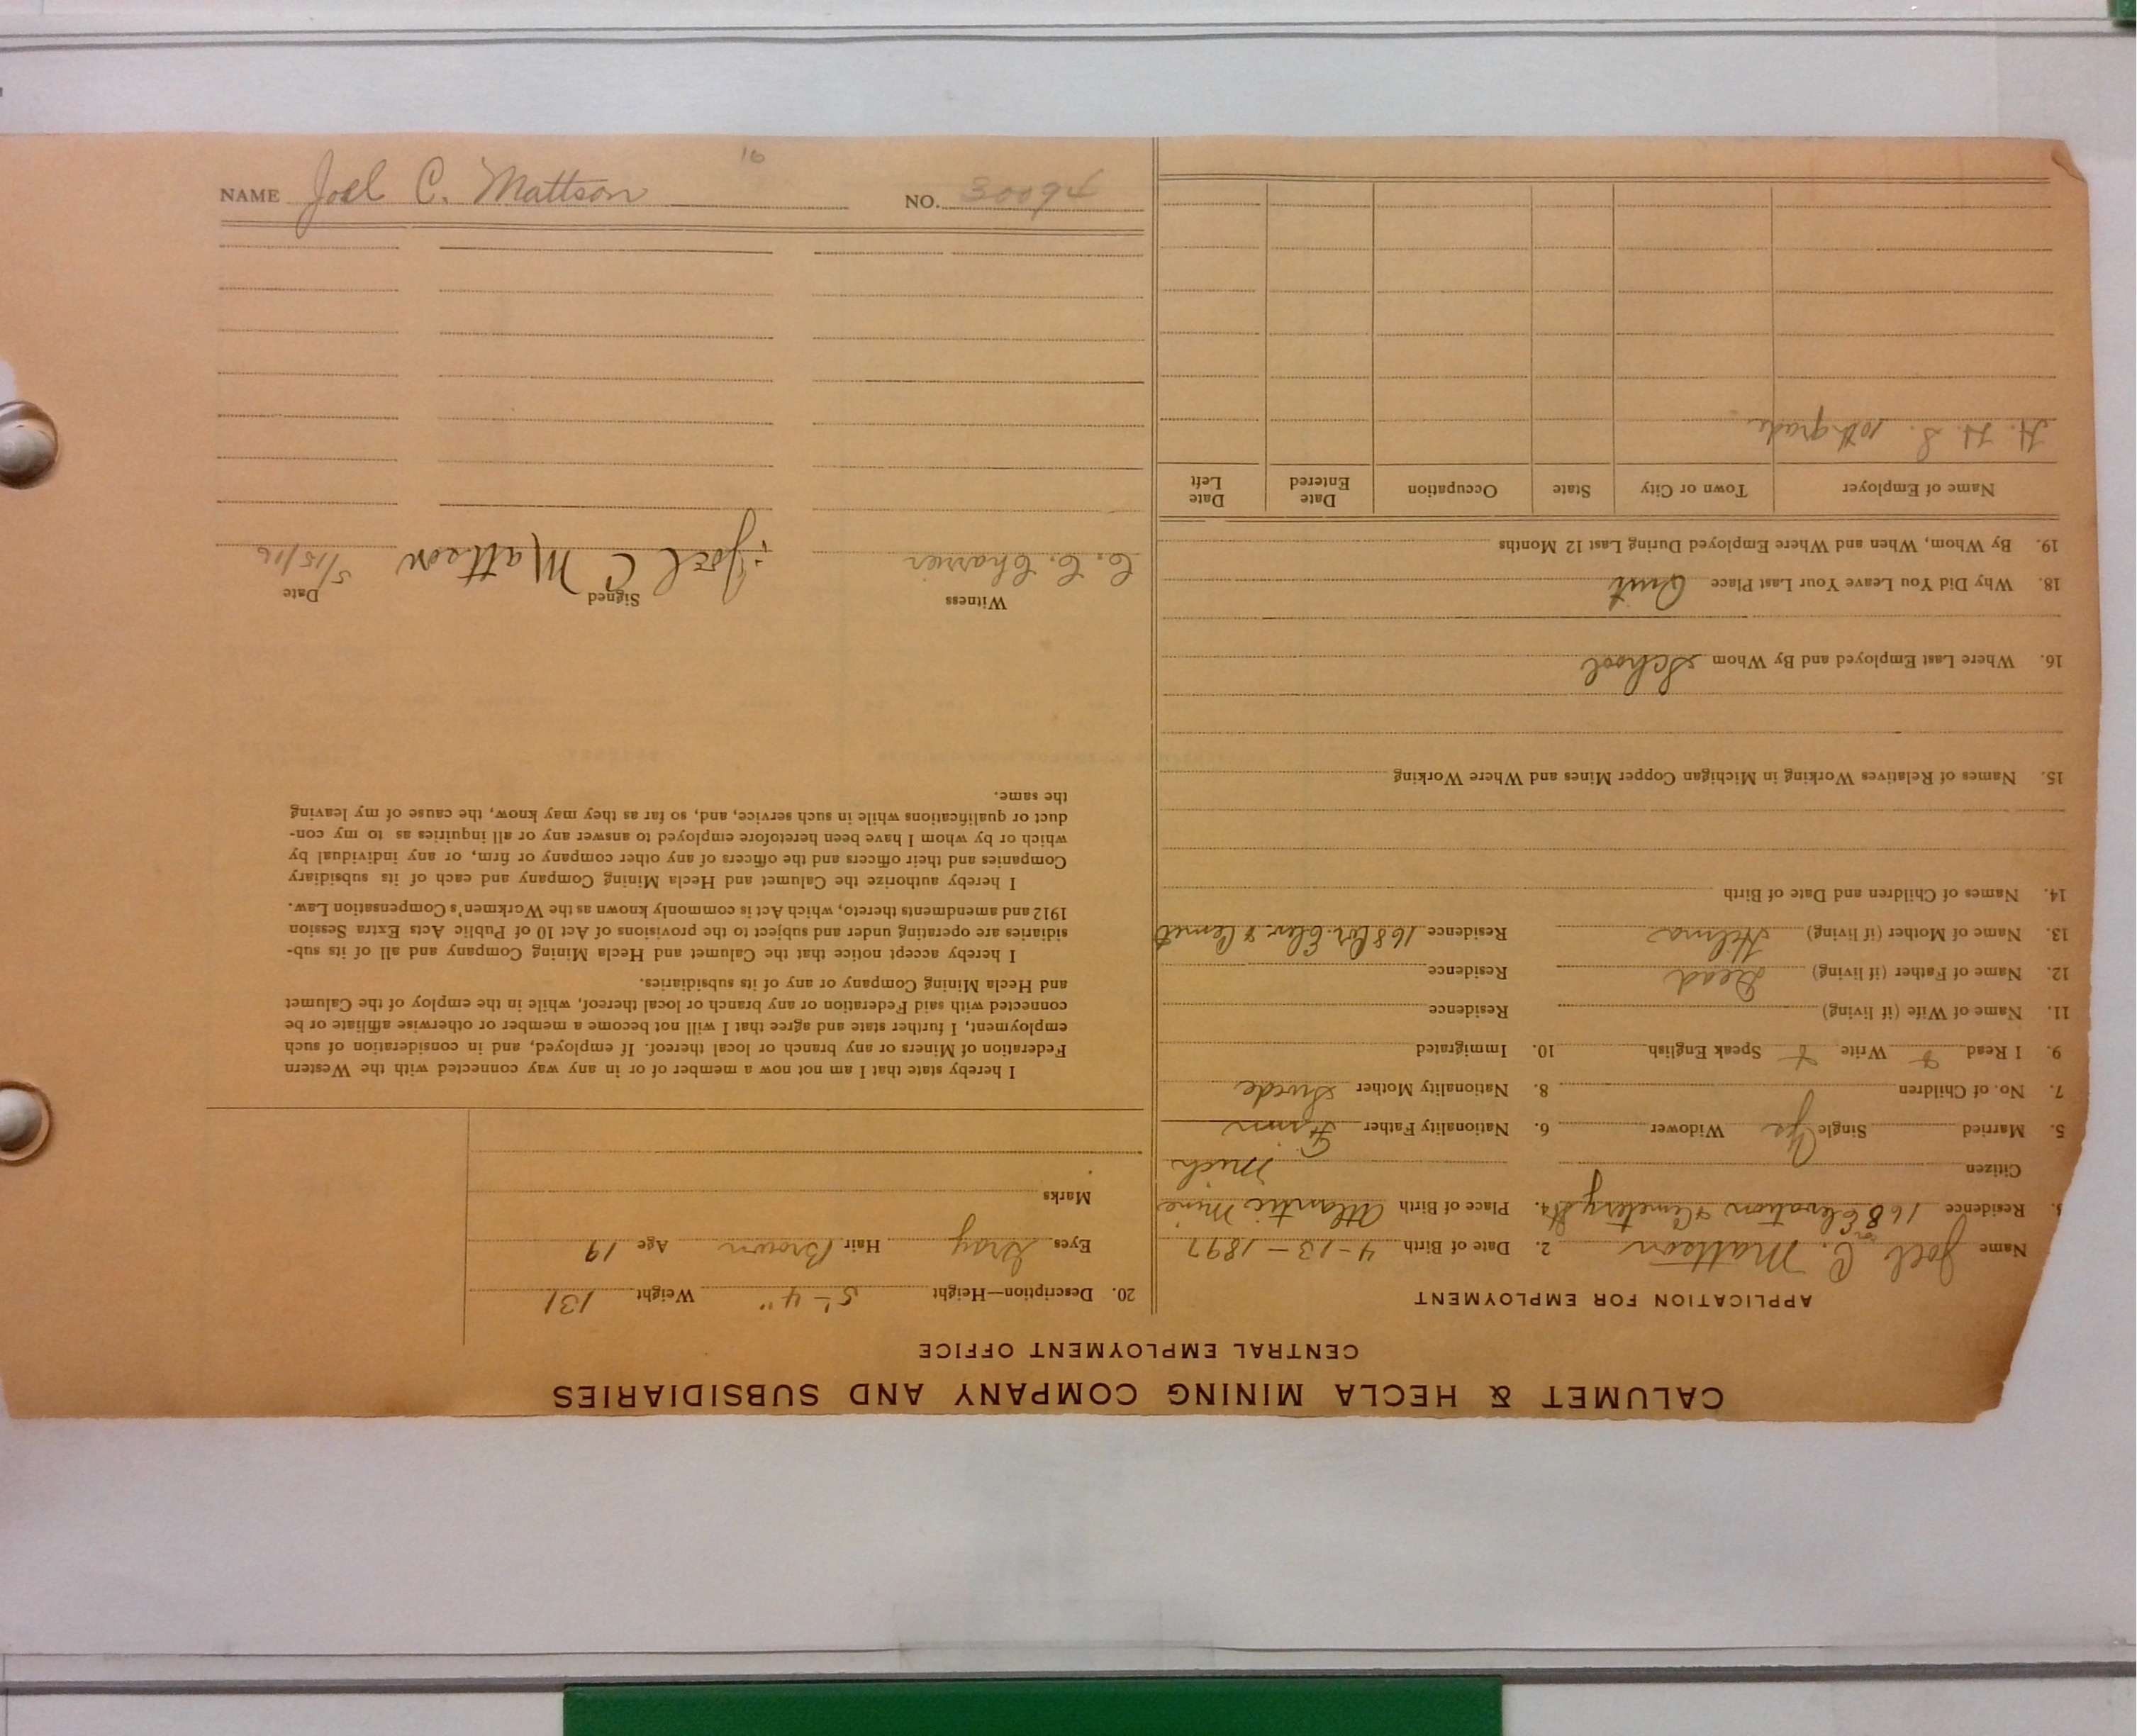 NAME Joel C. Mattson NO. 30094
16
CALUMET & HECLA MINING COMPANY AND SUBSIDIARIES
CENTRAL EMPLOYMENT OFFICE
APPLICATION FOR EMPLOYMENT
Name Joel C. Mattson 2. Date of Birth 4-13-1897
Residence 168 Cor Elevation & Cemetery Sts 4. Place of Birth Atlantic Mine
Citizen Mich
5. Married Single Yes Widower 6. Nationality Father Finn
7. No. of Children 8. Nationality Mother Swede
9. I Read Write Speak English 10. Immigrated
11. Name of Wife (if living) Residence
12. Name of Father (if living) Dead Residence
13. Name of Mother (if living) Hilma Residence 168 Cor. Elev. & Cemet
14. Names of Children and Date of Birth
15. Names of Relatives Working in Michigan Copper Mines and Where Working
16. Where Last Employed and By Whom School
18. Why Did You Leave Your Last Place Quit
19. By Whom, When and Where Employed During Last 12 Months
Name of Employer Town or City State Occupation Date Entered Date Left
H. H. S. 10th grade
20. Description—Height 5'-4" Weight 131
Eyes Gray Hair Brown Age 19
Marks
I hereby state that I am not now a member of or in any way connected with the Western
Federation of Miners or any branch or local thereof. If employed, and in consideration of such
employment, I further state and agree that I will not become a member or otherwise affiliate or be
connected with said Federation or any branch or local thereof, while in the employ of the Calumet
and Hecla Mining Company or any of its subsidiaries.
I hereby accept notice that the Calumet and Hecla Mining Company and all of its sub-
sidiaries are operating under and subject to the provisions of Act 10 of Public Acts Extra Session
1912 and amendments thereto, which Act is commonly known as the Workmen's Compensation Law.
I hereby authorize the Calumet and Hecla Mining Company and each of its subsidiary
Companies and their officers and the officers of any other company or firm, or any individual by
which or by whom I have been heretofore employed to answer any or all inquiries as to my con-
duct or qualifications while in such service, and, so far as they may know, the cause of my leaving
the same.
Witness Signed Date
C. C. Charrier Joel C Mattson 5/15/16